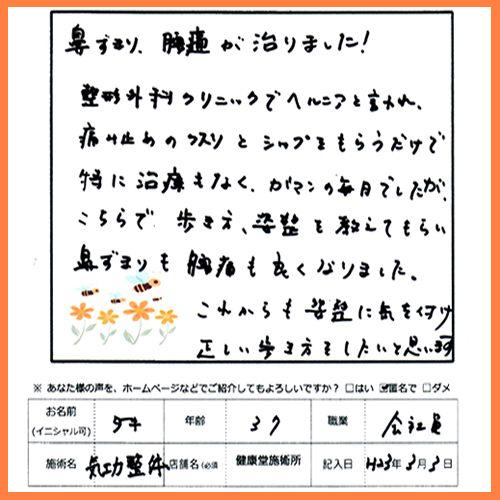 鼻ずまり、腰痛が治りました!
整形外科クリニックでヘルニアと言われ、
痛み止めのクスリとシップをもらうだけで
特に治療もなく、ガマンの毎日でしたが、
こちらで歩き方、姿整を教えてもらい
鼻ずまりも腰痛も良くなりました。
これからも姿整に気を付け
正しい歩き方をしたいと思います
※ あなた様の声を、ホームページなどでご紹介してもよろしいですか? □はい ☑匿名で □ダメ
お名前 (イニシャル可) 年齢 37 職業 会社員
施術名 気功整体 店舗名(必須 健康堂施術所 記入日 H23年3月3日